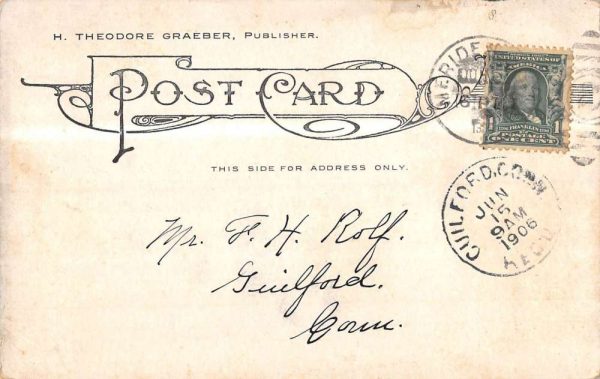 H. THEODORE GRAEBER, PUBLISHER.
POST CARD
THIS SIDE FOR ADDRESS ONLY.
MERIDE
UNITED STATES OF AMERICA
FRANKLIN
POSTAGE
1
ONE CENT
GUILFORD, CONN
JUN
15
9AM
1906
REC'D
Mr. F. H. Rolf.
Guilford.
Conn.